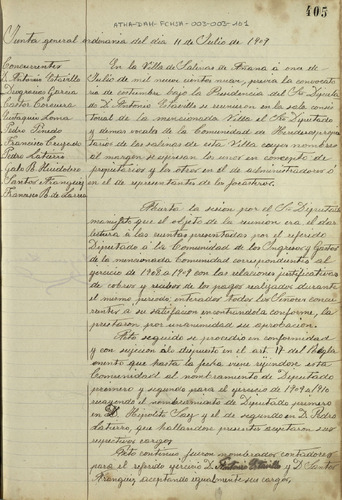 405
ATHA-DAH-FCHSA-003-003-101
Junta general ordinaria del día 11 de Julio de 1909
Concurrentes
D. Antonio Estavillo
Deogracias Garcia
Castor Corcuera
Eustaquio Loma
Pedro Pinedo
Francisco
Pedro Latierro
Galo B. Ruidobro
Santos Aranguiz
Francisco B. de
En la Villa de Salinas de Añana á once de
Julio de mil nueve cientos nueve, previa la convocato
ria de costumbre bajo la Presidencia del Sr Diputa
do D. Antonio Estavillo se reunieron en la sala consis
torial de la mencionada Villa el Sr Diputado
y demas vocales de la Comunidad de Herederos propie
tarios de las salinas de esta Villa cuyos nombres
al margen se espresan los unos en concepto de
propietarios y los otros en el de administradores ó
en el de representantes de los forasteros.
Abierta la sesión por el Sr Diputado
manifestó que el objeto de la reunion era el dar
lectura á las cuentas presentadas por el referido
Diputado á la Comunidad de los Ingresos y Gastos
de la mencionada Comunidad correspondientes al
ejercicio de 1908 a 1909 con las relaciones justificativas
de cobros y recibos de los pagos realizados durante
el mismo periodo, enterados todos los Señores concu
rrentes á su satisfacion encontrandola conforme, la
prestaron por unanimidad su aprobación.
Acto seguido se procedió en conformidad
y con sujeción alo dispuesto en el art. 17 del Regla
mento que hasta la fecha viene rijiendose esta
Comunidad al nombramiento de Diputado
primero y segundo para el ejercicio de 1909 a 1910
recayendo el nombramiento de Diputado primero
en D. Hipolito Saez y el de segundo en D. Pedro
Latierro, que hallandose presentes aceptaron sus
respectivos cargos.
Acto continuo fueron nombrados contadores
para el referido ejercicio D. Antonio Estavillo y D. Santos
Aranguiz aceptando igualmente sus cargos.